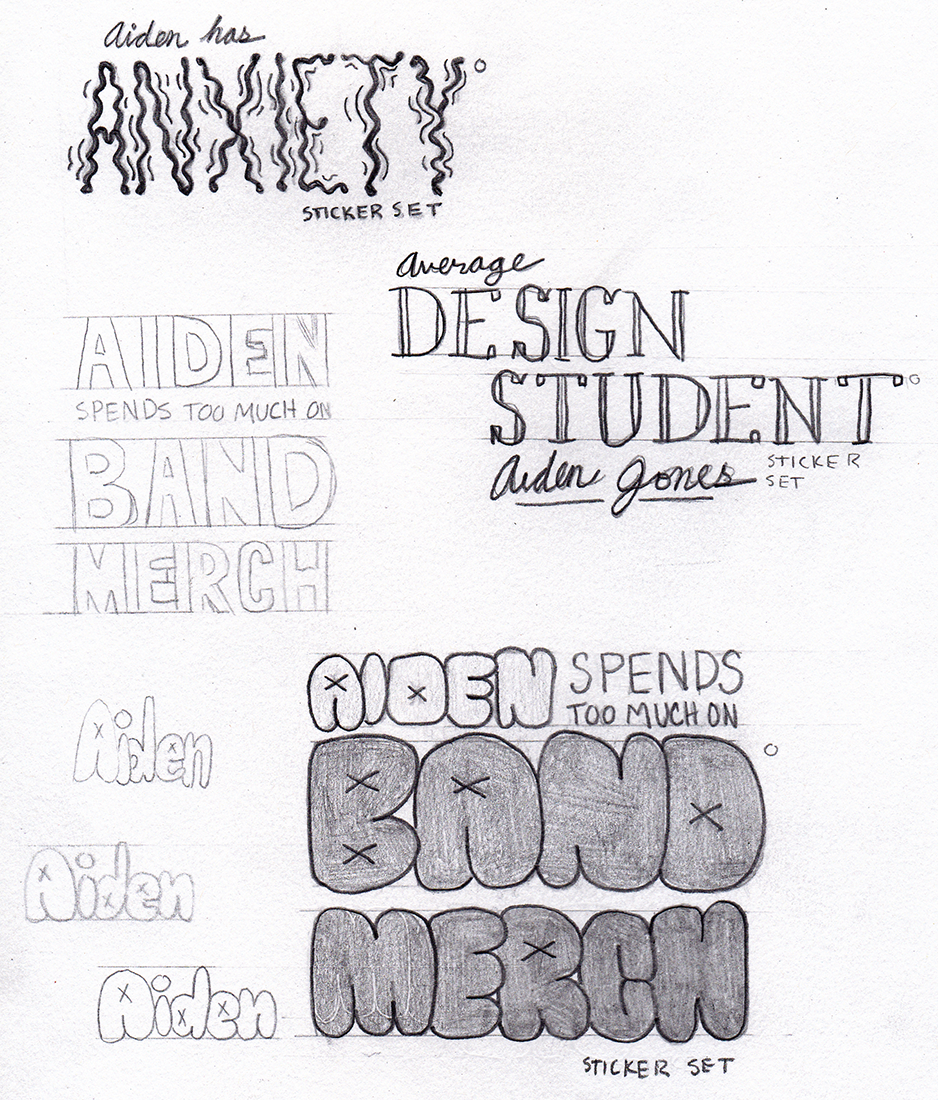 Aiden has
ANXIETY
STICKER SET
Average
DESIGN
STUDENT
Aiden Jones
STICKER
SET
AIDEN
SPENDS TOO MUCH ON
BAND
MERCH
AIDEN SPENDS
TOO MUCH ON
BAND
MERCH
STICKER SET
Aiden
Aiden
Aiden